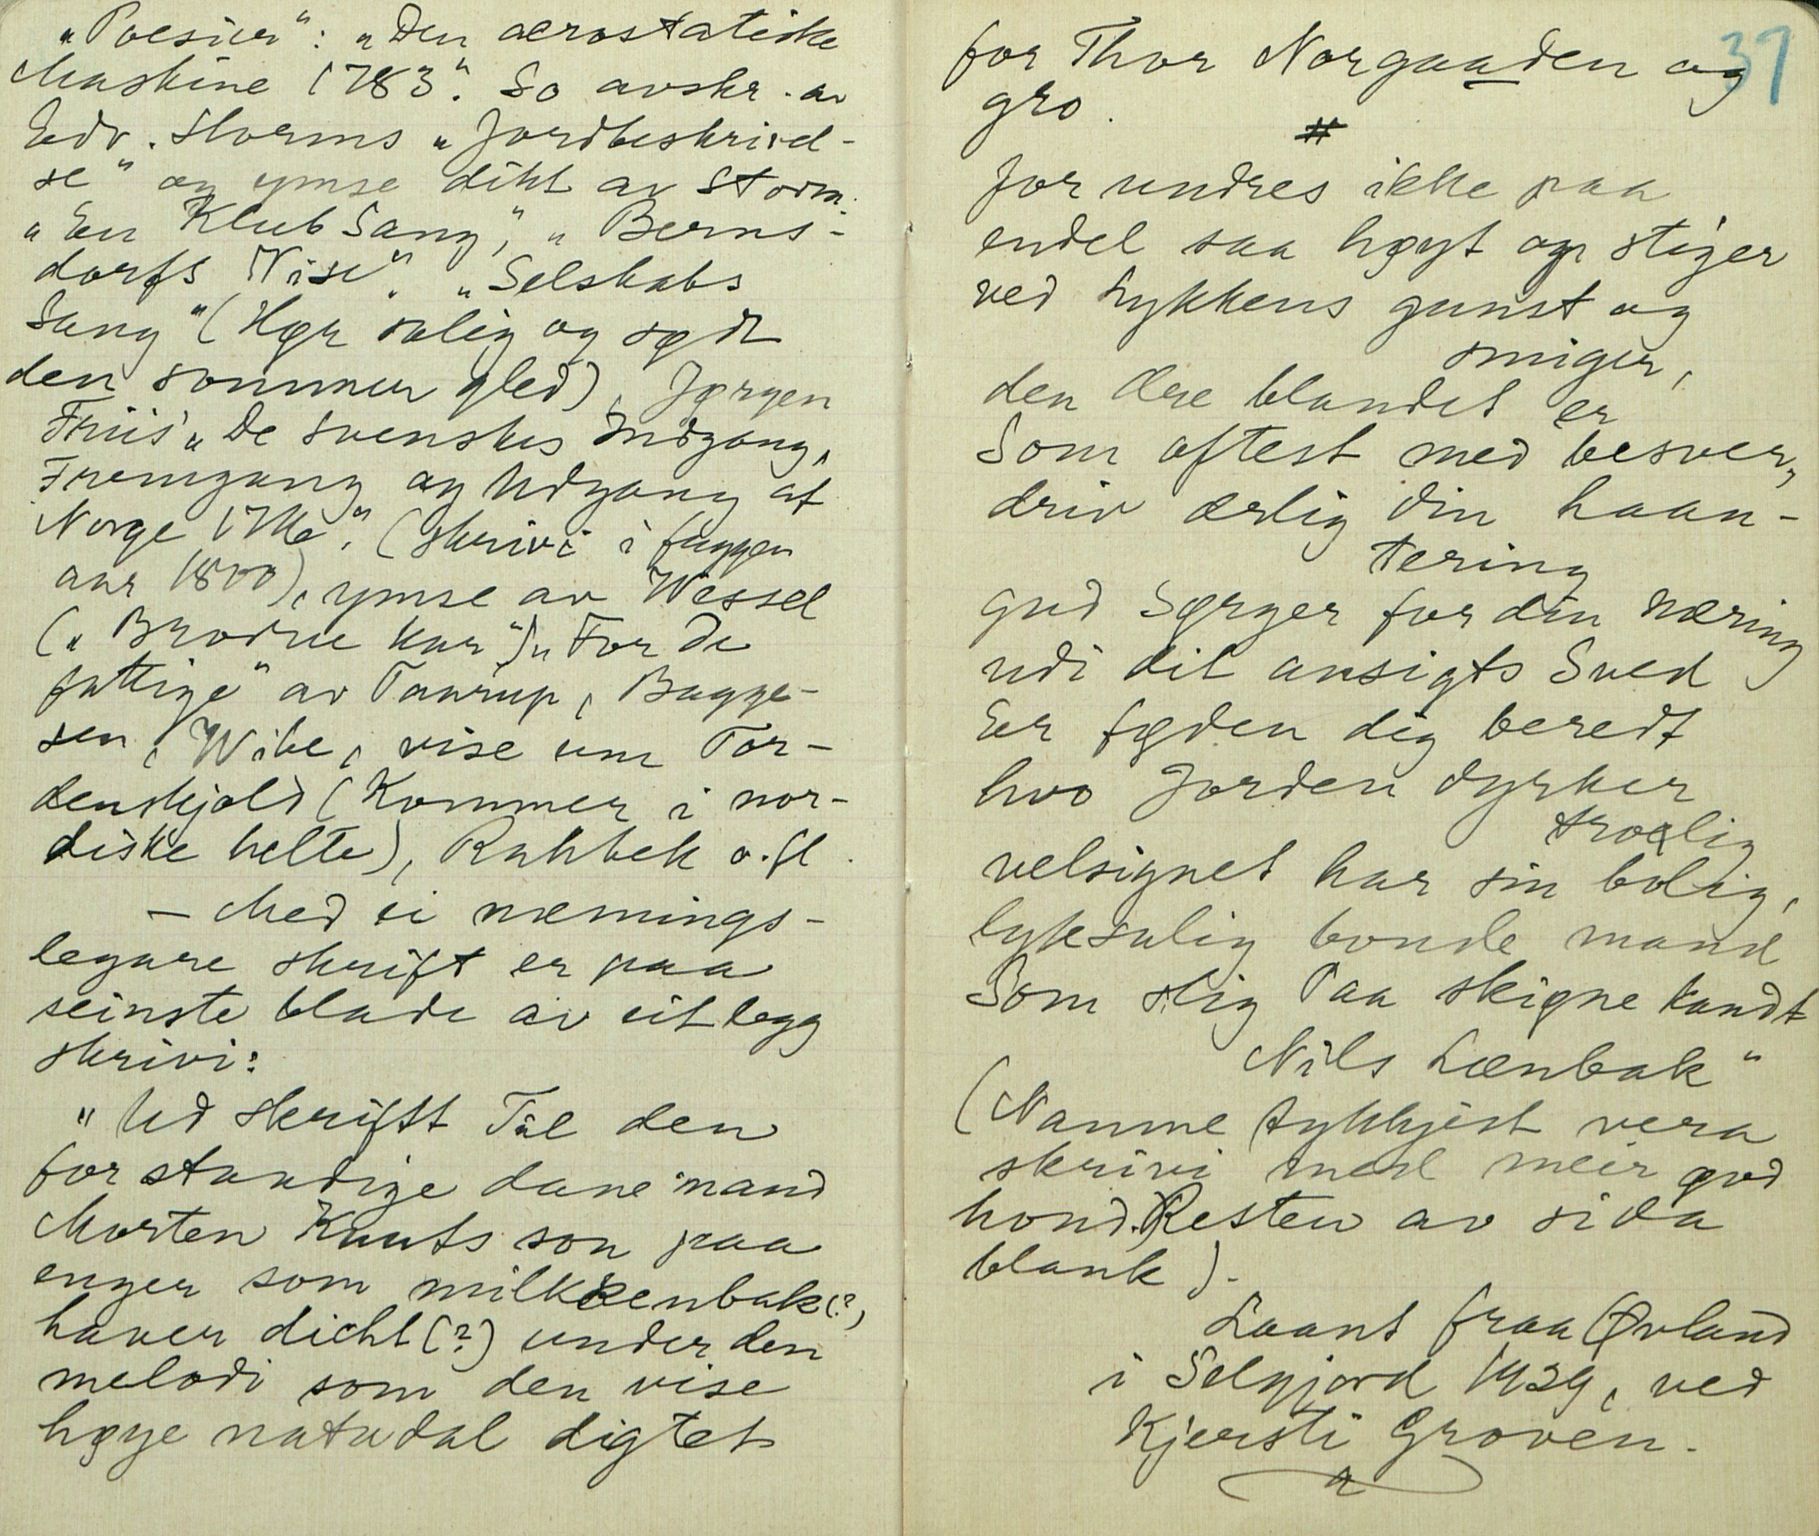 „Poesier": „Den aerostatiske
Maskine 1783". So avskr. av
Edv. Storms „Jordbeskrivel-
se" og ymse dikt av Storm.
„En Klub Sang", „Berns-
dorfs Vise". „Selskabs
Sang" (Hør salig og sødt
den sommer gled), Jørgen
Friis' „De Svenskes Indgang,
Fremgang og Udgang af
Norge 1716". (skrivi i
aar 1800), ymse av Wessel
(„Brødre har") „For de
fattige" av Taarup, Bagge-
sen, Wibe, vise um Tor-
denskjold (Kommer i nor-
diske helte), Rahbek o. fl.
– Med ei næmings-
legare skrift er paa
seinste blade av eit legg
skrivi:
"Ud skrift Til den
for standige dane mand
Morten Knuts son paa
enger som milkkenbak(?)
haver dicht(?) under den
melodi som den vise
høye natudal digtet
37
for Thor Norgaaden og
gro.
#
for undres ikke paa
endel saa høyt op stiger
ved Lykkens gunst og
smiger,
den ære blandet er
Som oftest med besver,
driv ærlig din haan-
tering
gud Sørger for din næring
udi dit ansigts Sved
Er føden dig beredt
hvo Jorden dyrker
troelig
velsignet har sin bolig,
lyksalig bonde mand
Som slig Paa skiøne kandt
Nils Lænbak"
(Namne tykkjest vera
skrivi med meir god
hond. Resten av sida
blank).
Laant fraa Øvland
i Selgjord 1929, ved
Kjersti Groven.